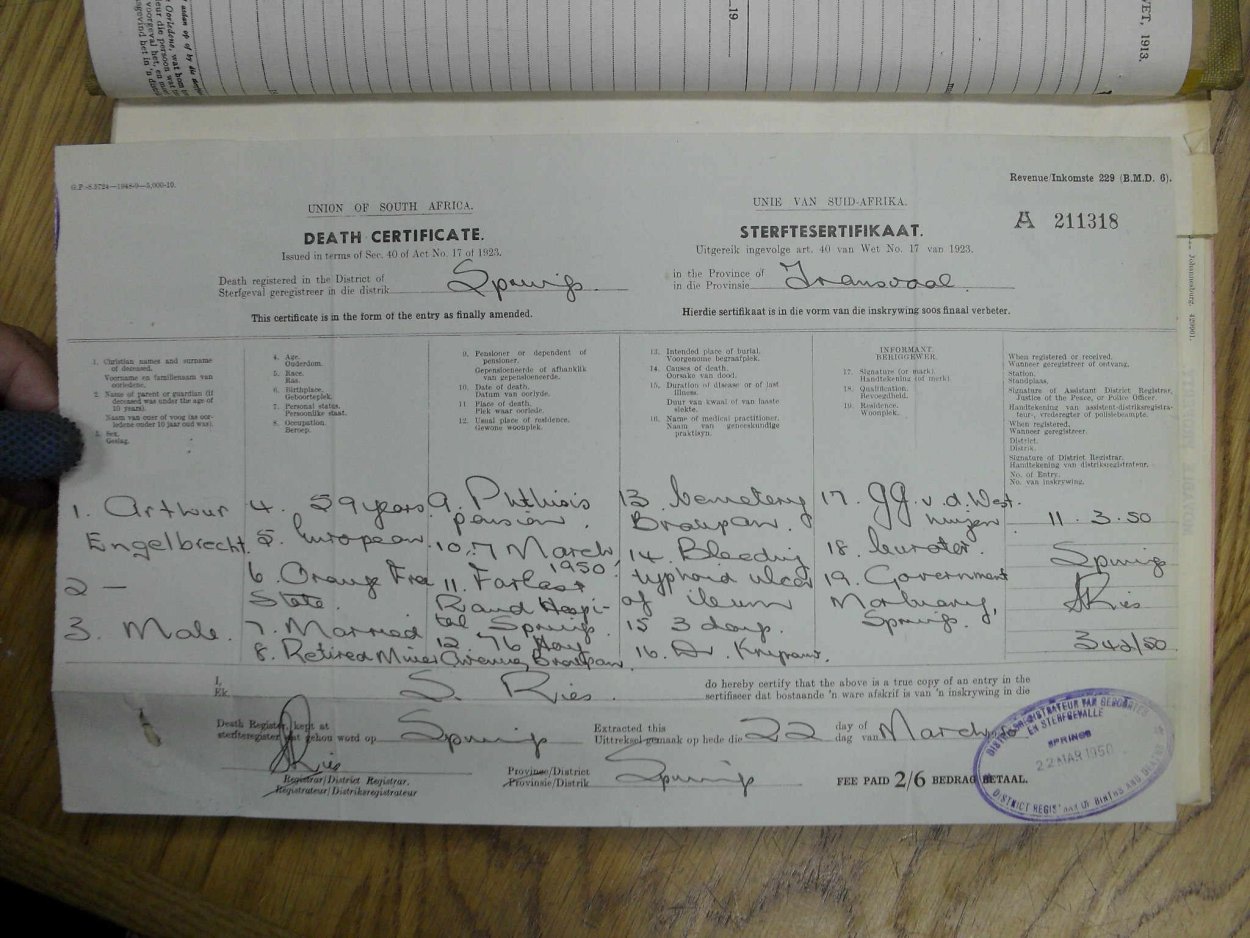 19
WET, 1913.
G.P.-S.3724—1948-9—5,000-10.
Revenue/Inkomste 229 (B.M.D. 6).
UNION OF SOUTH AFRICA.
UNIE VAN SUID-AFRIKA.
A 211318
DEATH CERTIFICATE.
STERFTESERTIFIKAAT.
Issued in terms of Sec. 40 of Act No. 17 of 1923.
Uitgereik ingevolge art. 40 van Wet No. 17 van 1923.
Death registered in the District of
Sterfgeval geregistreer in die distrik
Springs
in the Province of
in die Provinsie
Transvaal.
This certificate is in the form of the entry as finally amended.
Hierdie sertifikaat is in die vorm van die inskrywing soos finaal verbeter.
1. Christian names and surname
of deceased.
Voorname en familienaam van
oorledene.
2. Name of parent or guardian (if
deceased was under the age of
10 years).
Naam van ouer of voog (as oor-
ledene onder 10 jaar oud was).
3. Sex.
Geslag.
4. Age.
Ouderdom.
5. Race.
Ras.
6. Birthplace.
Geboorteplek.
7. Personal status.
Persoonlike staat.
8. Occupation.
Beroep.
9. Pensioner or dependent of
pensioner.
Gepensioeneerde of afhanklik
van gepensioeneerde.
10. Date of death.
Datum van oorlyde.
11. Place of death.
Plek waar oorlede.
12. Usual place of residence.
Gewone woonplek.
13. Intended place of burial.
Voorgenome begraafplek.
14. Causes of death.
Oorsake van dood.
15. Duration of disease or of last
illness.
Duur van kwaal of van laaste
siekte.
16. Name of medical practitioner.
Naam van geneeskundige
praktisyn.
INFORMANT
BERIGGEWER.
17. Signature (or mark).
Handtekening (of merk).
18. Qualification.
Bevoegdheid.
19. Residence.
Woonplek.
When registered or received.
Wanneer geregistreer of ontvang.
Station.
Standplaas.
Signature of Assistant District Registrar,
Justice of the Peace, or Police Officer.
Handtekening van assistent-distriksregistra-
teur-, vrederegter of polisiebeampte.
When registered.
Wanneer geregistreer.
District.
Distrik.
Signature of District Registrar.
Handtekening van distriksregistrateur.
No. of Entry.
No. van inskrywing.
1. Arthur
Engelbrecht.
2 —
3. Male.
4. 59 years
5. European
6. Orange Free
State.
7. Married
8. Retired Miner
9. Phthisis
pension.
10. 7 March
1950
11. Far East
Rand Hospi-
tal Springs.
12 76 Hoy
Avenue, Brakpan.
13. Cemetery
Brakpan.
14. Bleeding
typhoid ulcer
of ileum
15 3 days.
16. Dr.
17. GG v.d. West
huizen
18. Curator.
19. Government
Mortuary,
Springs.
11. 3. 50
Springs
SRies
342/50
I,
Ek,
S. Ries
do hereby certify that the above is a true copy of an entry in the
sertifiseer dat bostaande 'n ware afskrif is van 'n inskrywing in die
Death Register, kept at
sterfteregister wat gehou word op
Springs
Extracted this
Uittreksel gemaak op hede die
22
day of
dag van
March
SRies
Registrar/District Registrar.
Registrateur/Distriksregistrateur
Province/District
Provinsie/Distrik
Springs
FEE PAID 2/6 BEDRAG BETAAL.
DISTRIKSREGISTRATEUR VAN GEBOORTES
EN STERFGEVALLE
SPRINGS
22 MAR 1950
DISTRICT REGISTRAR OF BIRTHS AND DEATHS